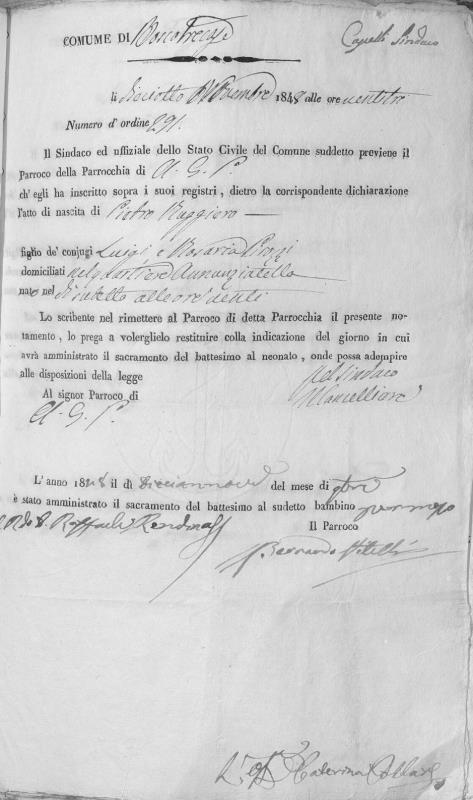 COMUNE DI Boscotrecase
Capelli Sindaco
li dieciotto Novembre 1848 alle ore ventitre
Numero d'ordine 291.
Il Sindaco ed uffiziale dello Stato Civile del Comune suddetto previene il
Parroco della Parrocchia di A. G. P.
ch' egli ha inscritto sopra i suoi registri, dietro la corrispondente dichiarazione
l'atto di nascita di Pietro Ruggiero
figlio de' conjugi Luigi e Rosaria
domiciliati nel quartiere Annunziatella
nato nel dì sudetto alle ore venti
Lo scribente nel rimettere al Parroco di detta Parrocchia il presente no-
tamento, lo prega a volerglielo restituire colla indicazione del giorno in cui
avrà amministrato il sacramento del battesimo al neonato, onde possa adempire
alle disposizioni della legge
Il Sindaco
Al signor Parroco di
A. G. P.
L'anno 1848 il dì diciannove del mese di 9bre
è stato amministrato il sacramento del battesimo al sudetto bambino per mezzo
Rdo D. Raffaele
Il Parroco
Bernardo Vitelli
L' Caterina